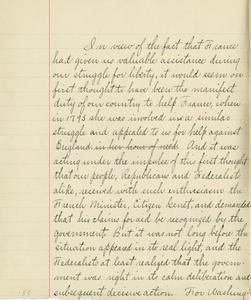 In view of the fact that France
had given us valuable assistance during
our struggle for liberty, it would seem on
first thought to have been the manifest
duty of our country to help France, when
in 1793 she was involved in a similar
struggle and appealed to us for help against
England in her hour of need. And it was
acting under the impulse of this first thought
that our people, Republicans and Federalists
alike, received with such enthusiasm the
French Minister, Citizen Genet, and demanded
that his claims for aid be recognized by the
government. But it was not long before the
situation appeared in its real light, and the
Federalist at least realized that the govern-
ment was right in its calm deliberation and
subsequent decisive action. For Washing-